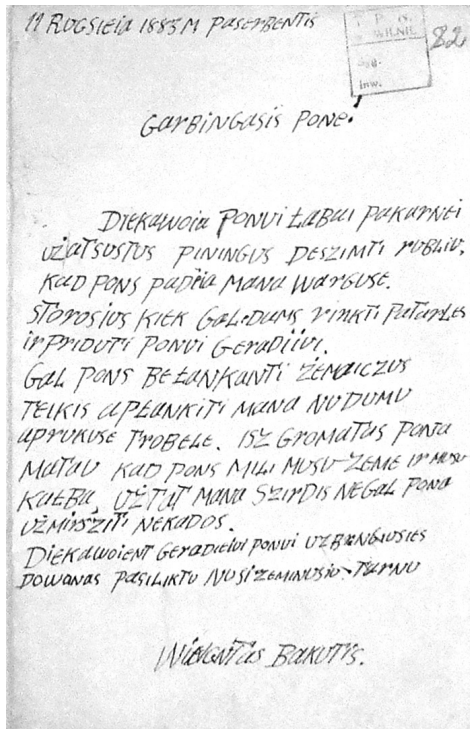 11 RUGSIEIA 1883 M PASERBENTIS
T. P. N.
W WILNIE
Syg.
Inw.
82
GARBINGASIS PONE!
DIEKAWOIA PONUI ŁABAI PAKARNEI
UŻATSUSTUS PININGUS DESZIMTI RUBLIU,
KAD PONS PADIIA MANA WARGUSE.
STOROSIUS KIEK GALIDAMS RINKTI PATARLES
IR PRIDUTI PONUI GERADIIUI.
GAL PONS BEŁANKANTI ŻEMAICZUS
TEIKIS APŁANKITI MANA NUDUMU
APRUKUSE TROBELE. ISZ GROMATAS PONA
MATAU KAD PONS MILI MUSU ZEME IR MUSU
KAŁBA, UŻTAT MANA SZIRDIS NEGAL PONA
UŻMIRSZTI NEKADOS.
DIEKAWOIENT GERADIEIUI PONUI UZ BRANGIUSIES
DOWANAS PASILIKTU NUSIZEMINUSIU TARNU
WICENTAS BAKUTIS.